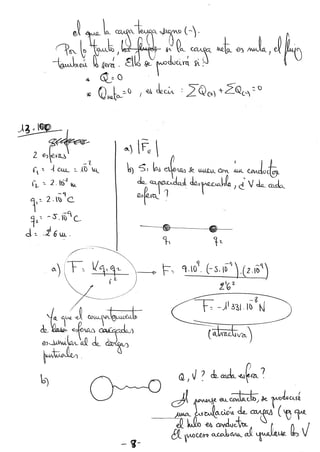 el que la carga tenga signo (-).
Por lo tanto, si la carga neta es nula, el flujo
también lo será. Ello se producirá si:
* Q=0
* Qneta=0, es decir: ΣQ(+) + ΣQ(-)=0
13.100
2 esferas
r₁ = 1 cm = 10⁻² m
r₂ = 2·10⁻² m
q₁ = 2·10⁻⁹ C
q₂ = -5·10⁻⁹ C
d = 2'6 m.
a) |Fe|
b) Si las esferas se unen con un conductor
de capacidad despreciable, ¿V de cada
esfera?
q₁ q₂
a) F = K q₁ q₂ / r² → F = 9·10⁹·(-5·10⁻⁹)·(2·10⁻⁹) / 2'6²
F = -1'331·10⁻⁸ N
(atractiva)
Ya que el comportamiento
de esferas cargadas
es similar al de cargas
puntuales.
b)
Q, V? de cada esfera?
Al ponerse en contacto, se producirá
una circulación de cargas (ya que
el hilo es conductor
El proceso acabará al igualarse los V
- 8 -